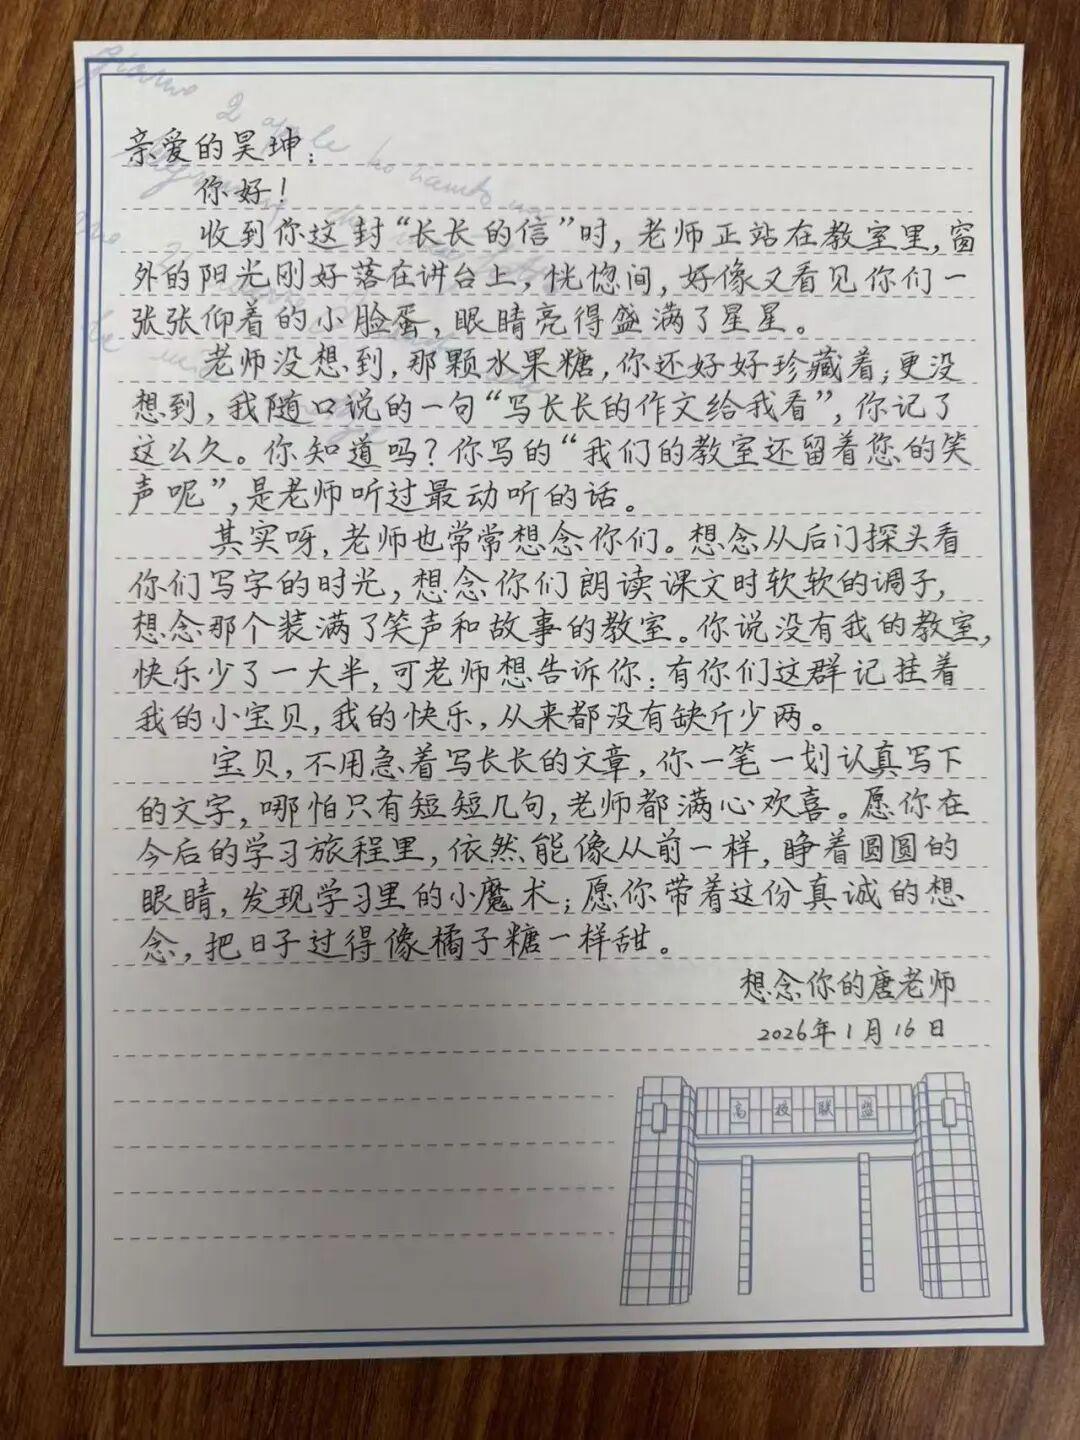 亲爱的昊珅：
你好！
收到你这封“长长的信”时，老师正站在教室里，窗
外的阳光刚好落在讲台上，恍惚间，好像又看见你们一
张张仰着的小脸蛋，眼睛亮得盛满了星星。
老师没想到，那颗水果糖，你还好好珍藏着；更没
想到，我随口说的一句“写长长的作文给我看”，你记了
这么久。你知道吗？你写的“我们的教室还留着您的笑
声呢”，是老师听过最动听的话。
其实呀，老师也常常想念你们。想念从后门探头看
你们写字的时光，想念你们朗读课文时软软的调子，
想念那个装满了笑声和故事的教室。你说没有我的教室，
快乐少了一大半，可老师想告诉你：有你们这群记挂着
我的小宝贝，我的快乐，从来都没有缺斤少两。
宝贝，不用急着写长长的文章，你一笔一划认真写下
的文字，哪怕只有短短几句，老师都满心欢喜。愿你在
今后的学习旅程里，依然能像从前一样，睁着圆圆的
眼睛，发现学习里的小魔术；愿你带着这份真诚的想
念，把日子过得像橘子糖一样甜。
想念你的唐老师
2026年1月16日
高校联盟